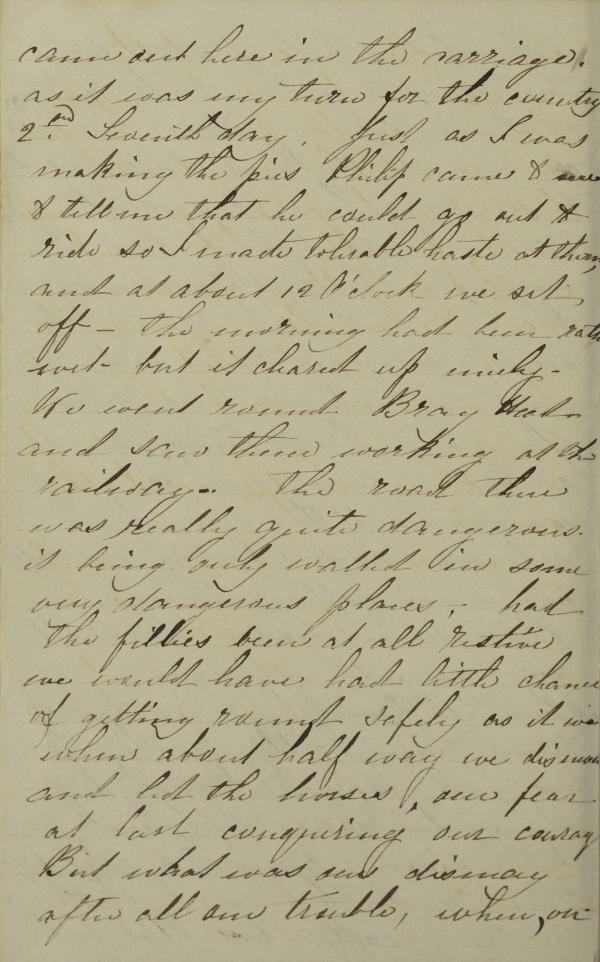 came out here in the carriage.
as it was my turn for the country
2nd. Seventh day. Just as I was
making the pies Philip came &
& tell me that he could go out &
ride so I made tolerable haste at them,
and at about 12 O'clock we set
off – the morning had been rath
wet – but it cleared up nicely –
We went round Bray Head
and saw them working at the
railway – the road there
was really quite dangerous.
it being only walled in some
very dangerous places, had
the fillies been at all restive
we would have had little chance
of getting round safely as it was
when about half way we dismou
and led the horses, our fear
at last conquering our courag
But what was our dismay
after all our trouble, when, on